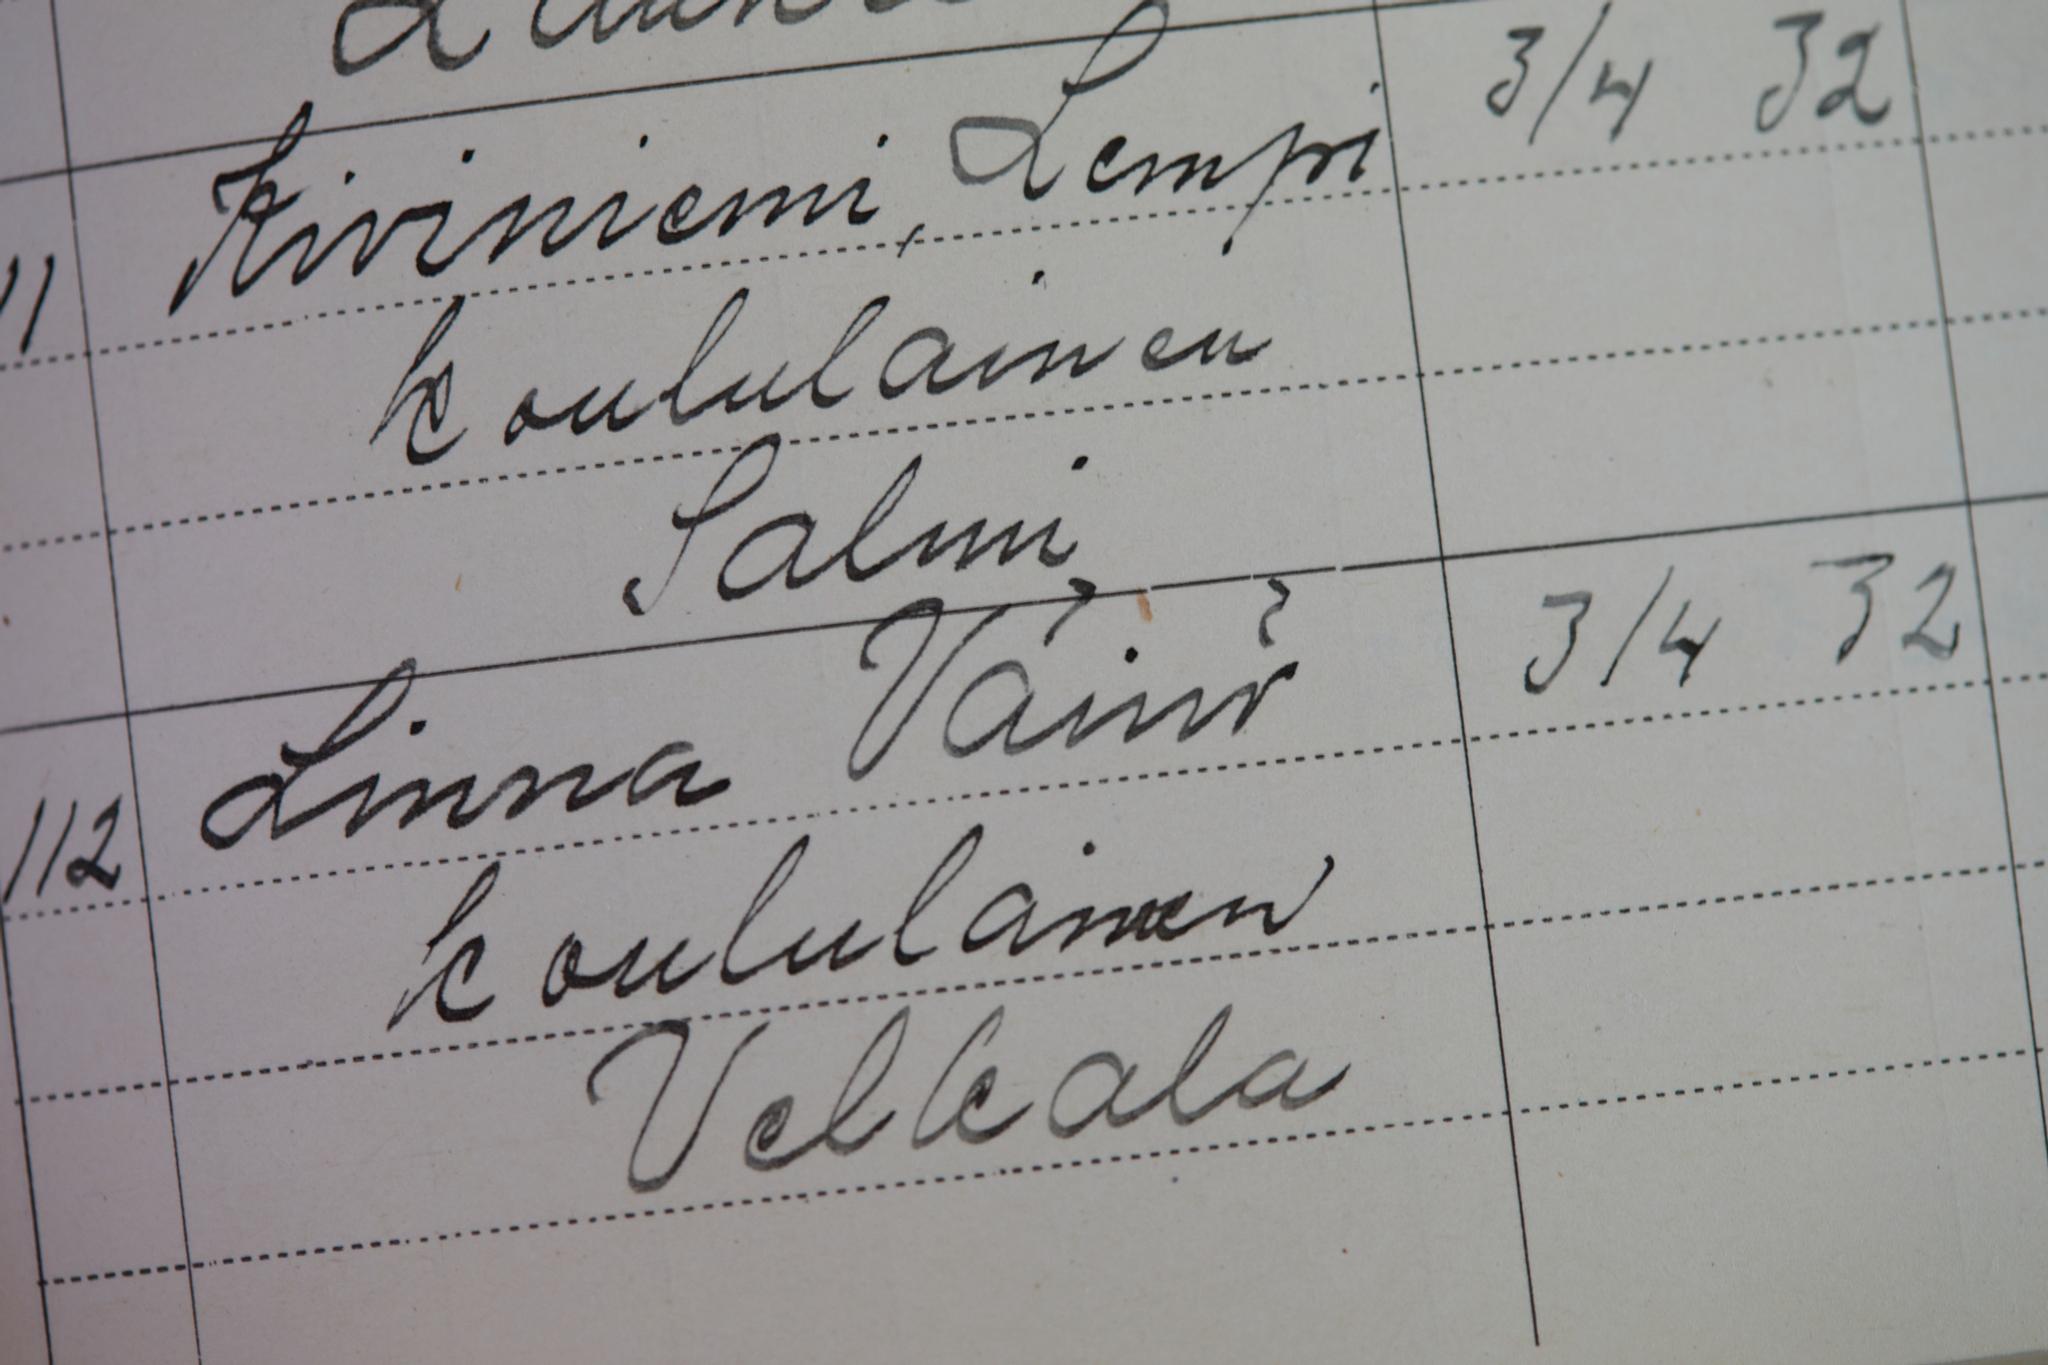 11 Kiviniemi, Lempi 3/4 32
koululainen
Salmi
112 Linna Väinö 3/4 32
koululainen
Velkala